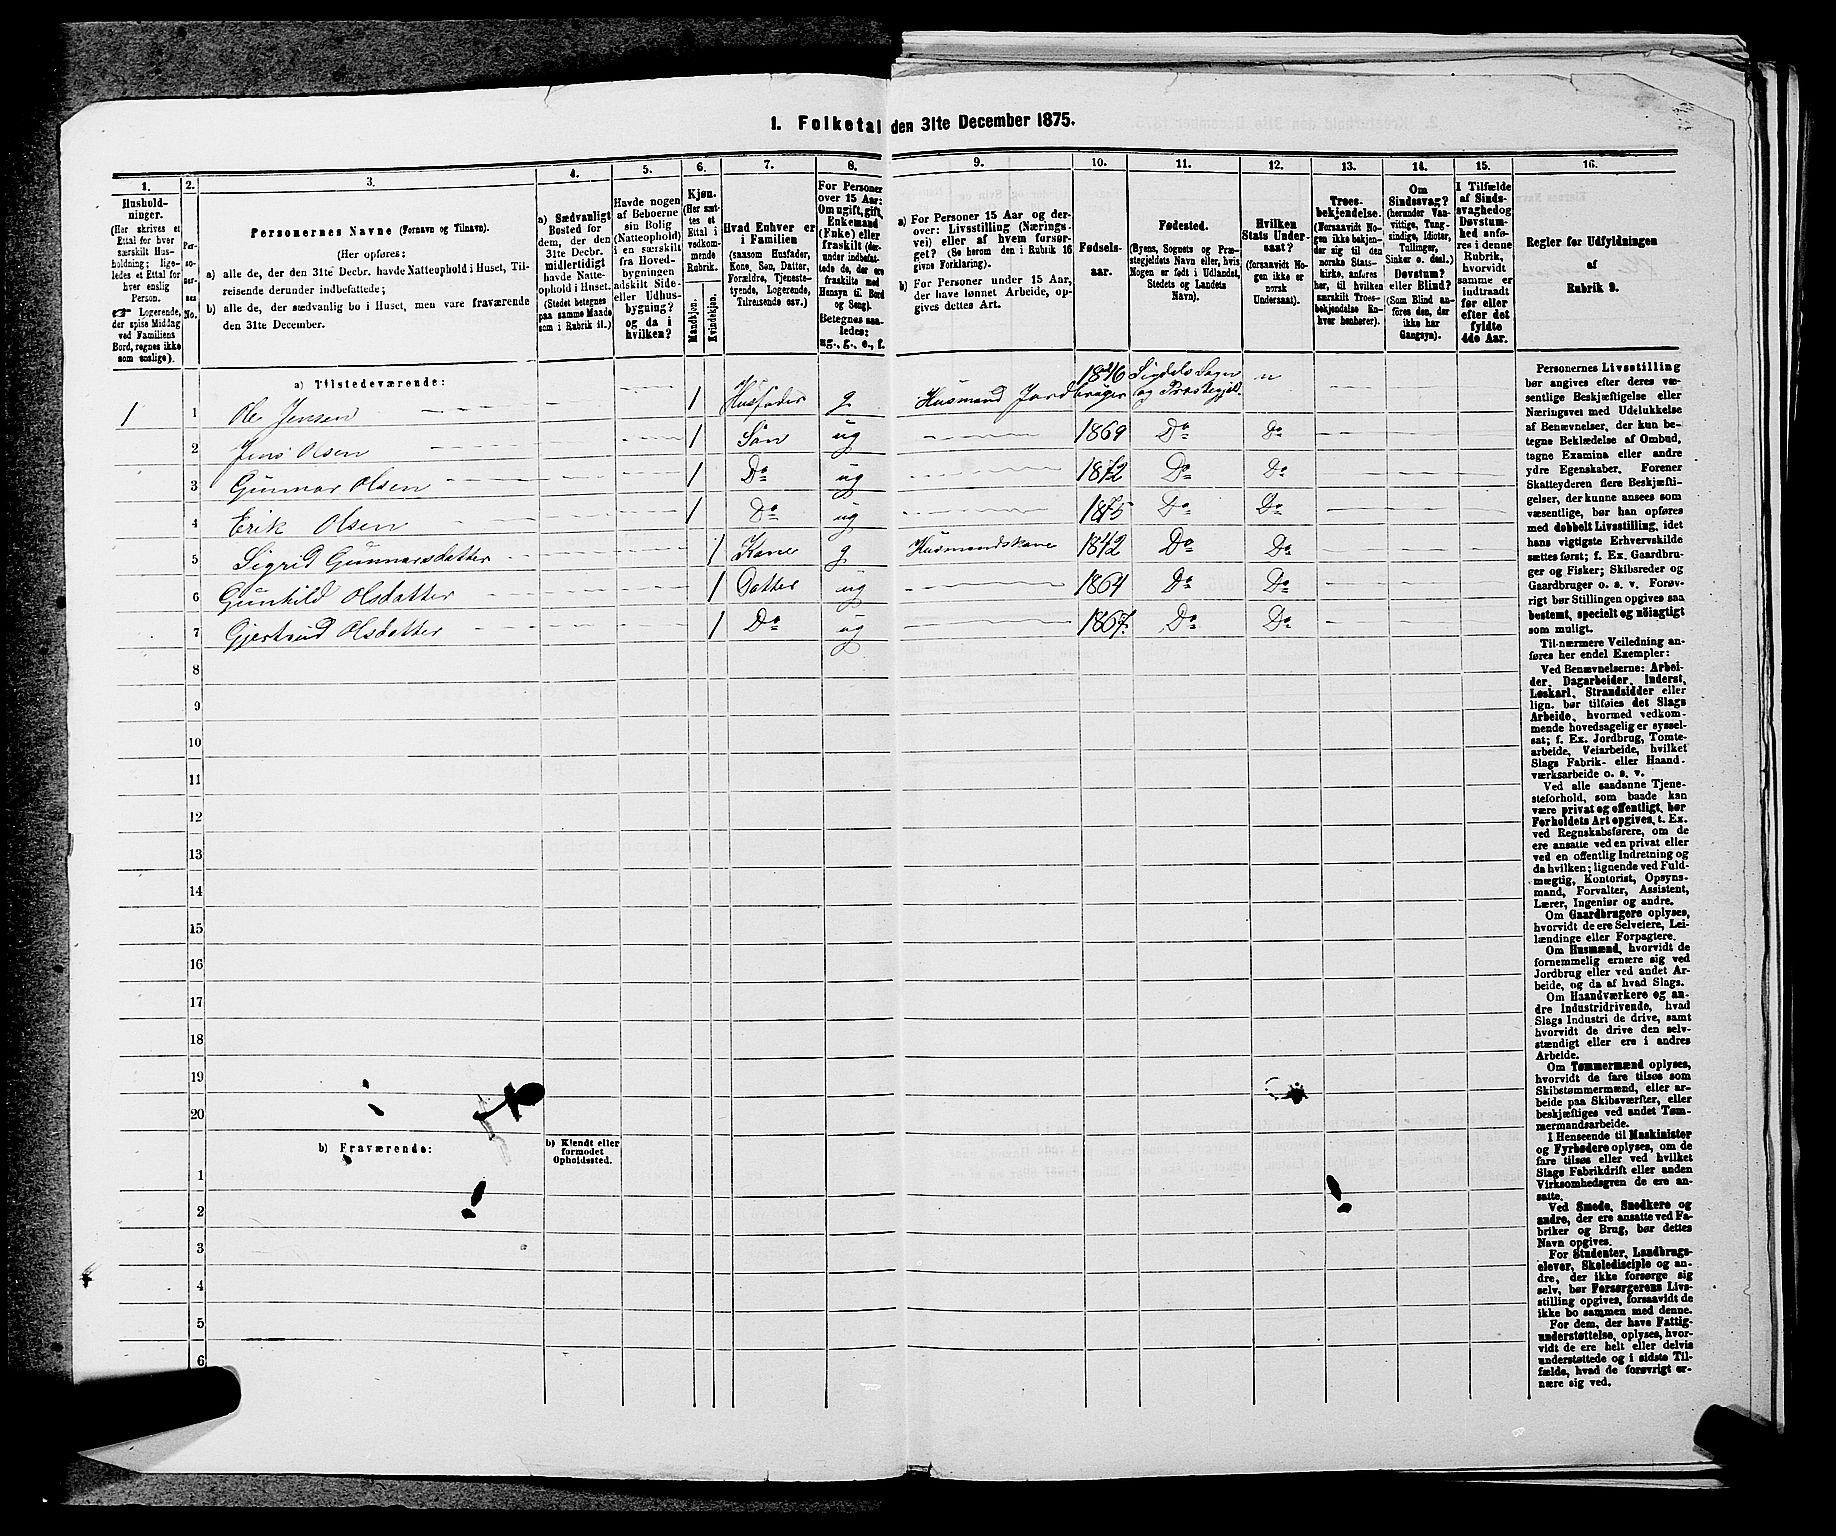 1. Folketal den 31te December 1875.
1.
2.
3.
4.
5.
6.
7.
8.
9.
10.
11.
12.
13.
14.
15.
16.
Hushold-
ninger.
(Her skrives et
Ettal for hver
særskilt Hus-
holdning; lige-
ledes et Ettal for
hver enslig
Person.
☛ Logerende,
der spise Middag
ved Familiens
Bord, regnes ikke
som enslige).
Per-
so-
ner-
nes
No.
Personernes Navne (Fornavn og Tilnavn).
(Her opføres:
a) alle de, der den 31te Decbr. havde Natteophold i Huset, Til-
reisende derunder indbefattede;
b) alle de, der sædvanlig bo i Huset, men vare fraværende
den 31te December.
a) Sædvanligt
Bosted for
dem, der den
31te Decbr.
midlertidigt
havde Natte-
ophold i Huset.
(Stedet betegnes
paa samme Maade
som i Rubrik 11.)
Havde nogen
af Beboerne
sin Bolig
(Natteophold)
i en særskilt
fra Hoved-
bygningen
adskilt Side-
eller Udhus-
bygning?
og da i
hvilken?
Kjøn.
(Her sæt-
tes et
Ettal i
vedkom-
mende
Rubrik.
Mandkjøn.
Kvindekjøn.
Hvad Enhver er
i Familien
(saasom Husfader,
Kone, Søn, Datter,
Forældre, Tjeneste-
tyende, Logerende,
Tilreisende osv.)
For Personer
over 15 Aar:
Om ugift, gift,
Enkemand
(Enke) eller
fraskilt (der-
under indbefat-
tede de, der ere
fraskilte med
Hensyn til Bord
og Seng).
Betegnes saa-
ledes:
ug., g., e., f.
a) For Personer 15 Aar og der-
over: Livsstilling (Nærings-
vei) eller af hvem forsør-
get? (Se herom den i Rubrik 16
givne Forklaring).
b) For Personer under 15 Aar,
der have lønnet Arbeide, op-
gives dettes Art.
Fødsels-
aar.
Fødested.
(Byens, Sognets og Præ-
stegjeldets Navn eller, hvis
Nogen er født i Udlandet,
Stedets og Landets
Navn).
Hvilken
Stats Under-
saat?
(forsaavidt No-
gen ikke er
norsk
Undersaat).
Troes-
bekjendelse.
(Forsaavidt No-
gen ikke bekjen-
der sig til den
norske Stats-
kirke, anføres
her, til hvilken
særskilt Troes-
bekjendelse En-
hver henhører).
Om
Sindssvag?
(herunder Van-
vittige, Tung-
sindige, Idioter,
Tullinger,
Sinker o. desl.)
Døvstum?
eller Blind?
(Som Blind an-
føres den, der
ikke har
Gangsyn).
I Tilfælde
af Sinds-
svaghed og
Døvstum-
hed anfø-
res i denne
Rubrik,
hvorvidt
samme er
indtraadt
før eller
efter det
fyldte
4de Aar.
Regler for Udfyldningen
af
Rubrik 9.
a) Tilstedeværende:
1 1 Ole Jensen 1 Husfader g Husmand Jordbruger 1846 Sigdals Sogn og Præstegjeld n
2 Jens Olsen 1 Søn ug 1869 Do Do
3 Gunnar Olsen 1 Do ug 1872 Do Do
4 Erik Olsen 1 Do ug 1875 Do Do
5 Sigrid Gunnarsdatter 1 Kone g Husmandskone 1842 Do Do
6 Gunhild Olsdatter 1 Datter ug 1864 Do Do
7 Gjertrud Olsdatter 1 Do ug 1867 Do Do
8
9
10
11
12
13
14
15
16
17
18
19
20
b) Fraværende:
b) Kjendt eller
formodet
Opholdssted.
1
2
3
4
5
6
Personernes Livsstilling
bør angives efter deres væ-
sentlige Beskjæftigelse eller
Næringsvei med Udelukkelse
af Benævnelser, der kun be-
tegne Beklædelse af Ombud,
tagne Examina eller andre
ydre Egenskaber. Forener
Skatteyderen flere Beskjæfti-
gelser, der kunne ansees som
væsentlige, bør han opføres
med dobbelt Livsstilling, idet
hans vigtigste Erhvervskilde
sættes først; f. Ex. Gaardbru-
ger og Fisker; Skibsreder og
Gaardbruger o. s. v. Forøv-
rigt bør Stillingen opgives saa
bestemt, specielt og nöiagtigt
som muligt.
Til nærmere Veiledning an-
føres her endel Exempler:
Ved Benævnelserne: Arbei-
der, Dagarbeider, Inderst,
Løskarl, Strandsidder eller
lign. bør tilføies det Slags
Arbeide, hvormed vedkom-
mende hovedsagelig er syssel-
sat; f. Ex. Jordbrug, Tomte-
arbeide, Veiarbeide, hvilket
Slags Fabrik- eller Haand-
værksarbeide o. s. v.
Ved alle saadanne Tjene-
steforhold, som baade kan
være privat og offentligt, bør
Forholdets Art opgives, t. Ex.
ved Regnskabsførere, om de
ere ansatte ved en privat eller
ved en offentlig Indretning og
da hvilken; lignende ved Fuld-
mægtig, Kontorist, Opsyns-
mand, Forvalter, Assistent,
Lærer, Ingeniør og andre.
Om Gaardbrugere oplyses,
hvorvidt de ere Selveiere, Lei-
lændinge eller Forpagtere.
Om Husmænd, hvorvidt de
fornemmelig ernære sig ved
Jordbrug eller ved andet Ar-
beide, og da af hvad Slags.
Om Haandværkere og an-
dre Industridrivende, hvad
Slags Industri de drive, samt
hvorvidt de drive den selv-
stændigt eller ere i andres
Arbeide.
Om Tømmermænd oplyses,
hvorvidt de fare tilsøs som
Skibstømmermænd, eller ar-
beide paa Skibsværfter, eller
beskjæftiges ved andet Tøm-
mermandsarbeide.
I Henseende til Maskinister
og Fyrbødere oplyses, om de
fare tilsøs eller ved hvilket
Slags Fabrikdrift eller anden
Virksomhedsgren de ere an-
satte.
Ved Smede, Snedkere og
andre, der ere ansatte ved Fa-
briker og Brug, bør dettes
Navn opgives.
For Studenter, Landbrugs-
elever, Skoledisciple og an-
dre, der ikke forsørge sig
selv, bør Forsørgerens Livs-
stilling opgives, forsaavidt de
ikke bo sammen med denne.
For dem, der have Fattig-
understøttelse, oplyses, hvor-
vidt de ere helt eller delvis
understøttede og i sidste Til-
fælde, hvad de forøvrigt er-
nære sig ved.